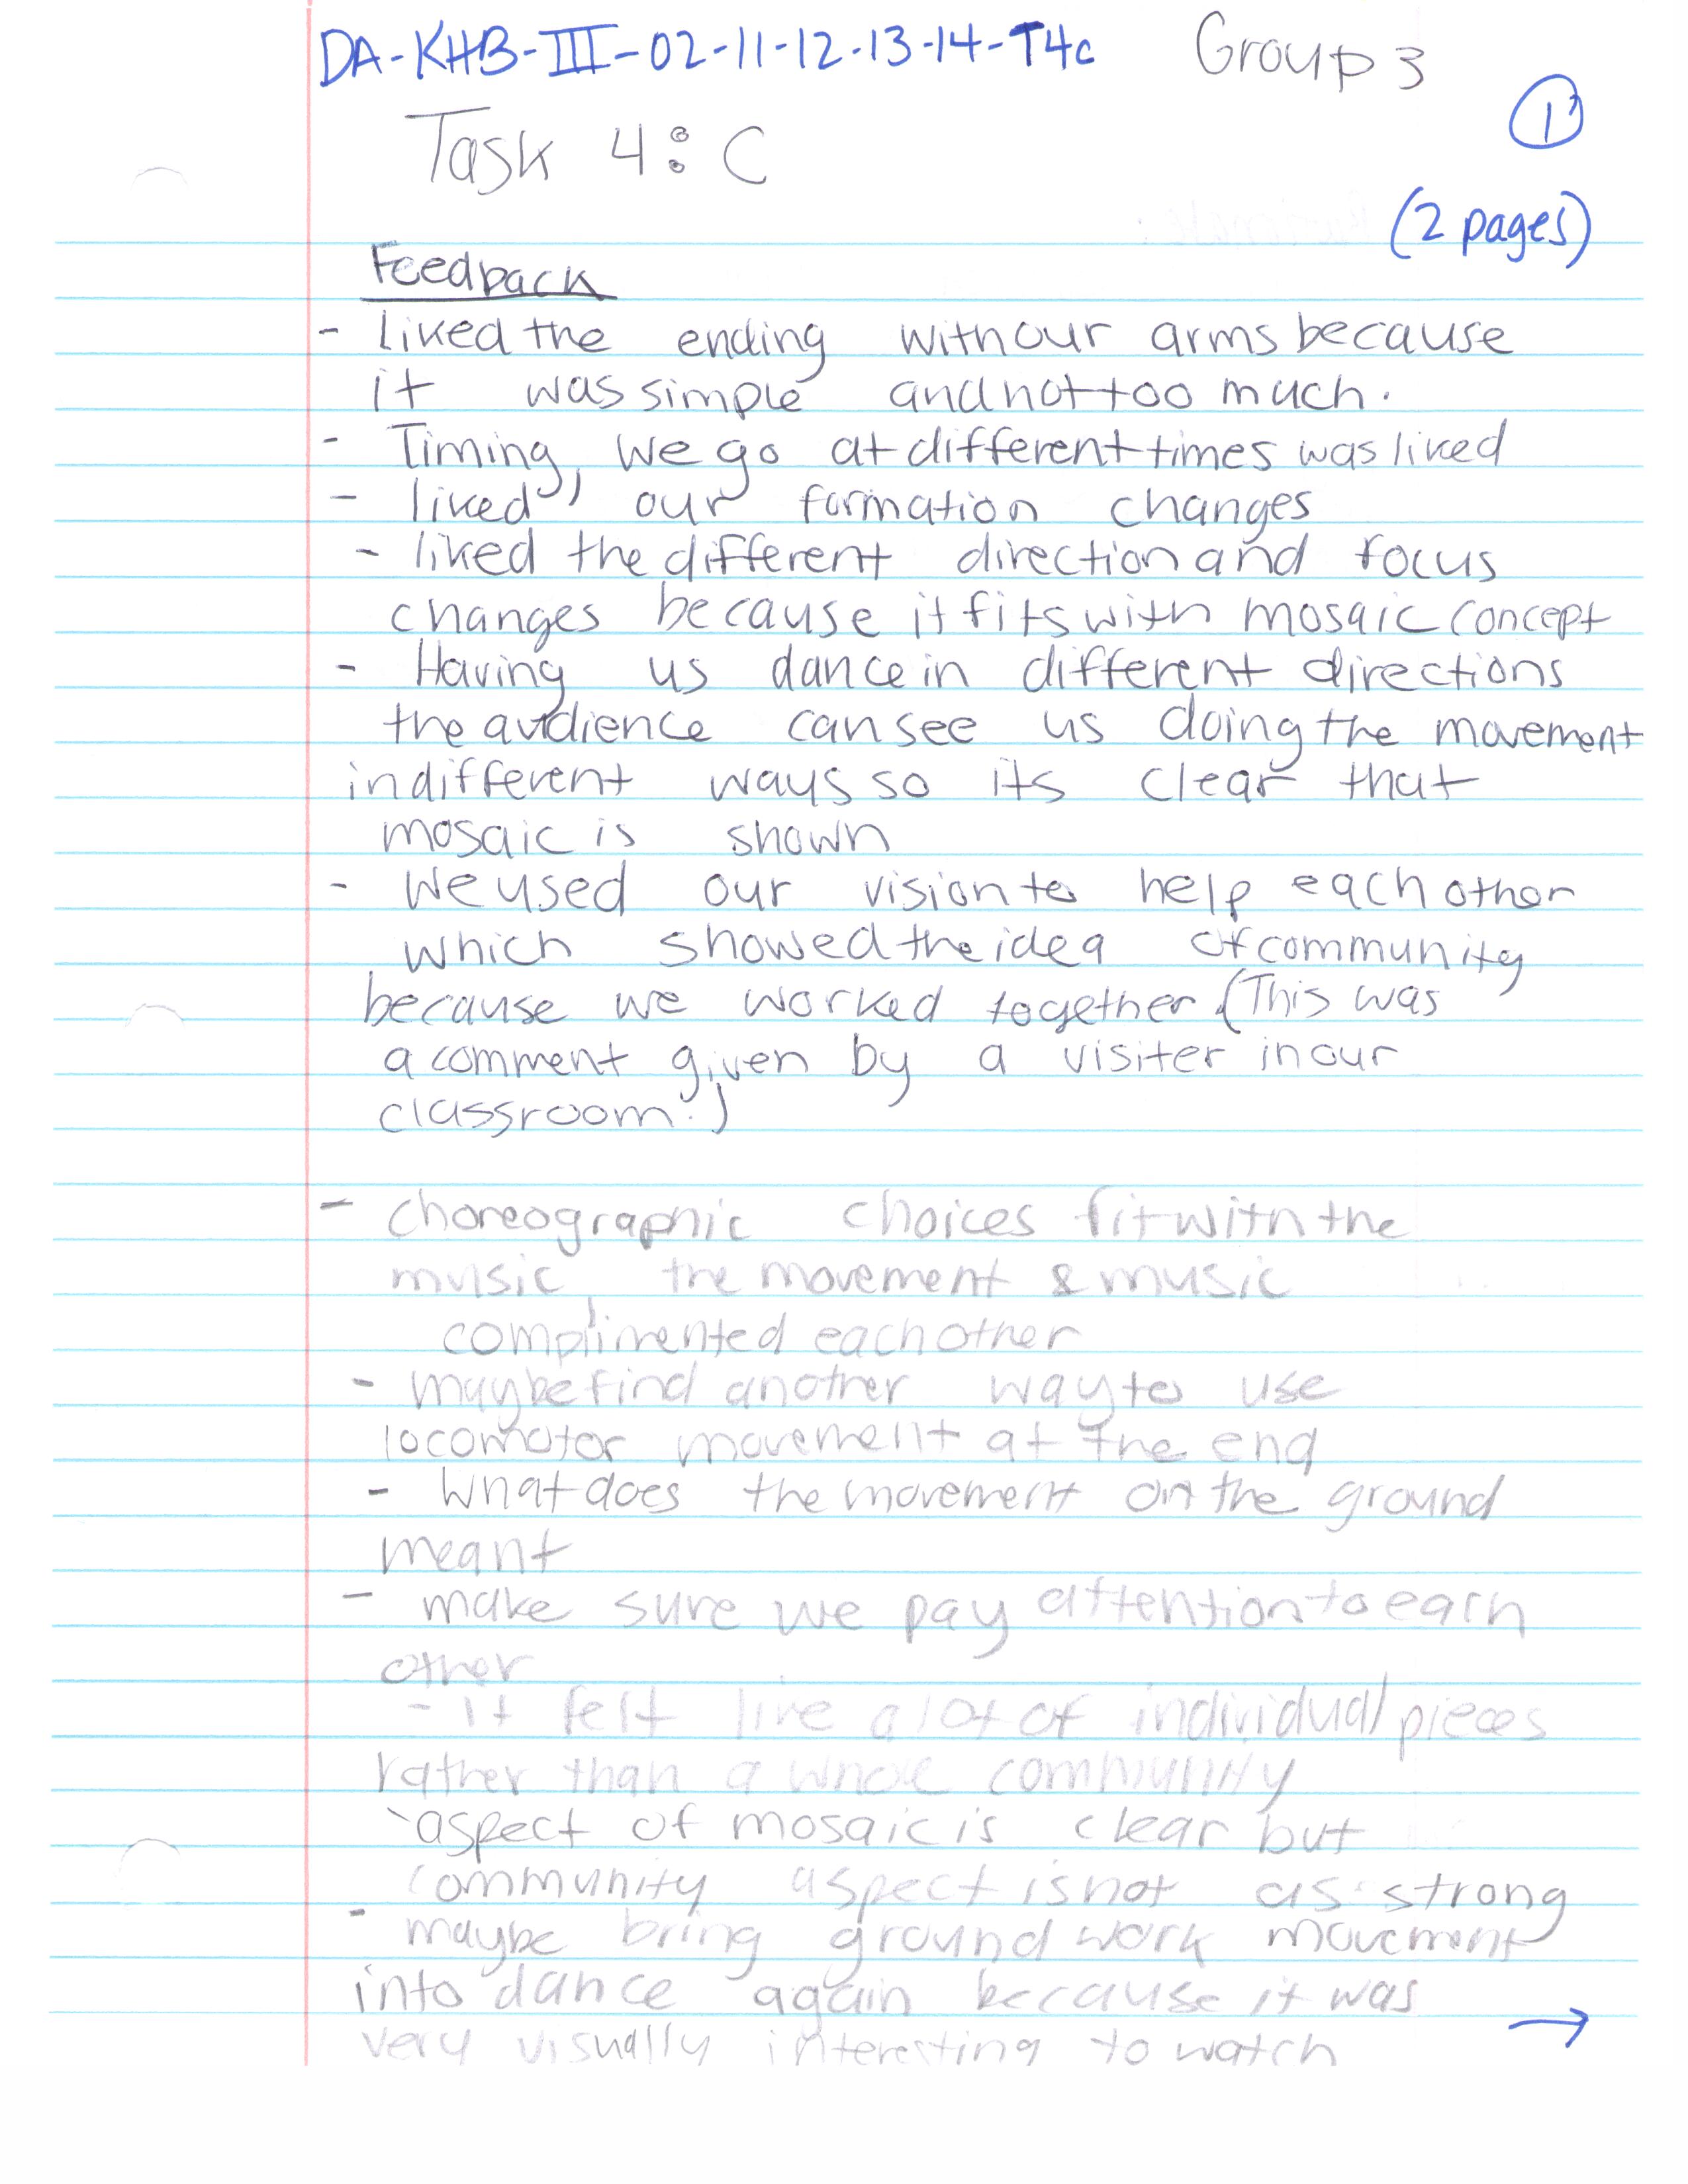 DA-KHB-III-02-11-12-13-14-T4c Group 3
1
Task 4: C
(2 pages)
Feedback
- liked the ending with our arms because
it was simple and not too much.
- Timing, we go at different times was liked
- liked our formation changes
- liked the different direction and focus
changes because it fits with mosaic concept
- Having us dance in different directions
the audience can see us doing the movement
in different ways so its clear that
mosaic is shown
- We used our vision to help each other
which showed the idea of community
because we worked together (This was
a comment given by a visiter in our
classroom.)
- choreographic choices fit with the
music, the movement & music
complimented each other
- maybe find another way to use
locomotor movement at the end
- What does the movement on the ground
meant
- make sure we pay attention to each
other
- it felt like a lot of individual pieces
rather than a whole community
- aspect of mosaic is clear but
community aspect is not as strong
- maybe bring ground work movement
into dance again because it was
very visually interesting to watch
→